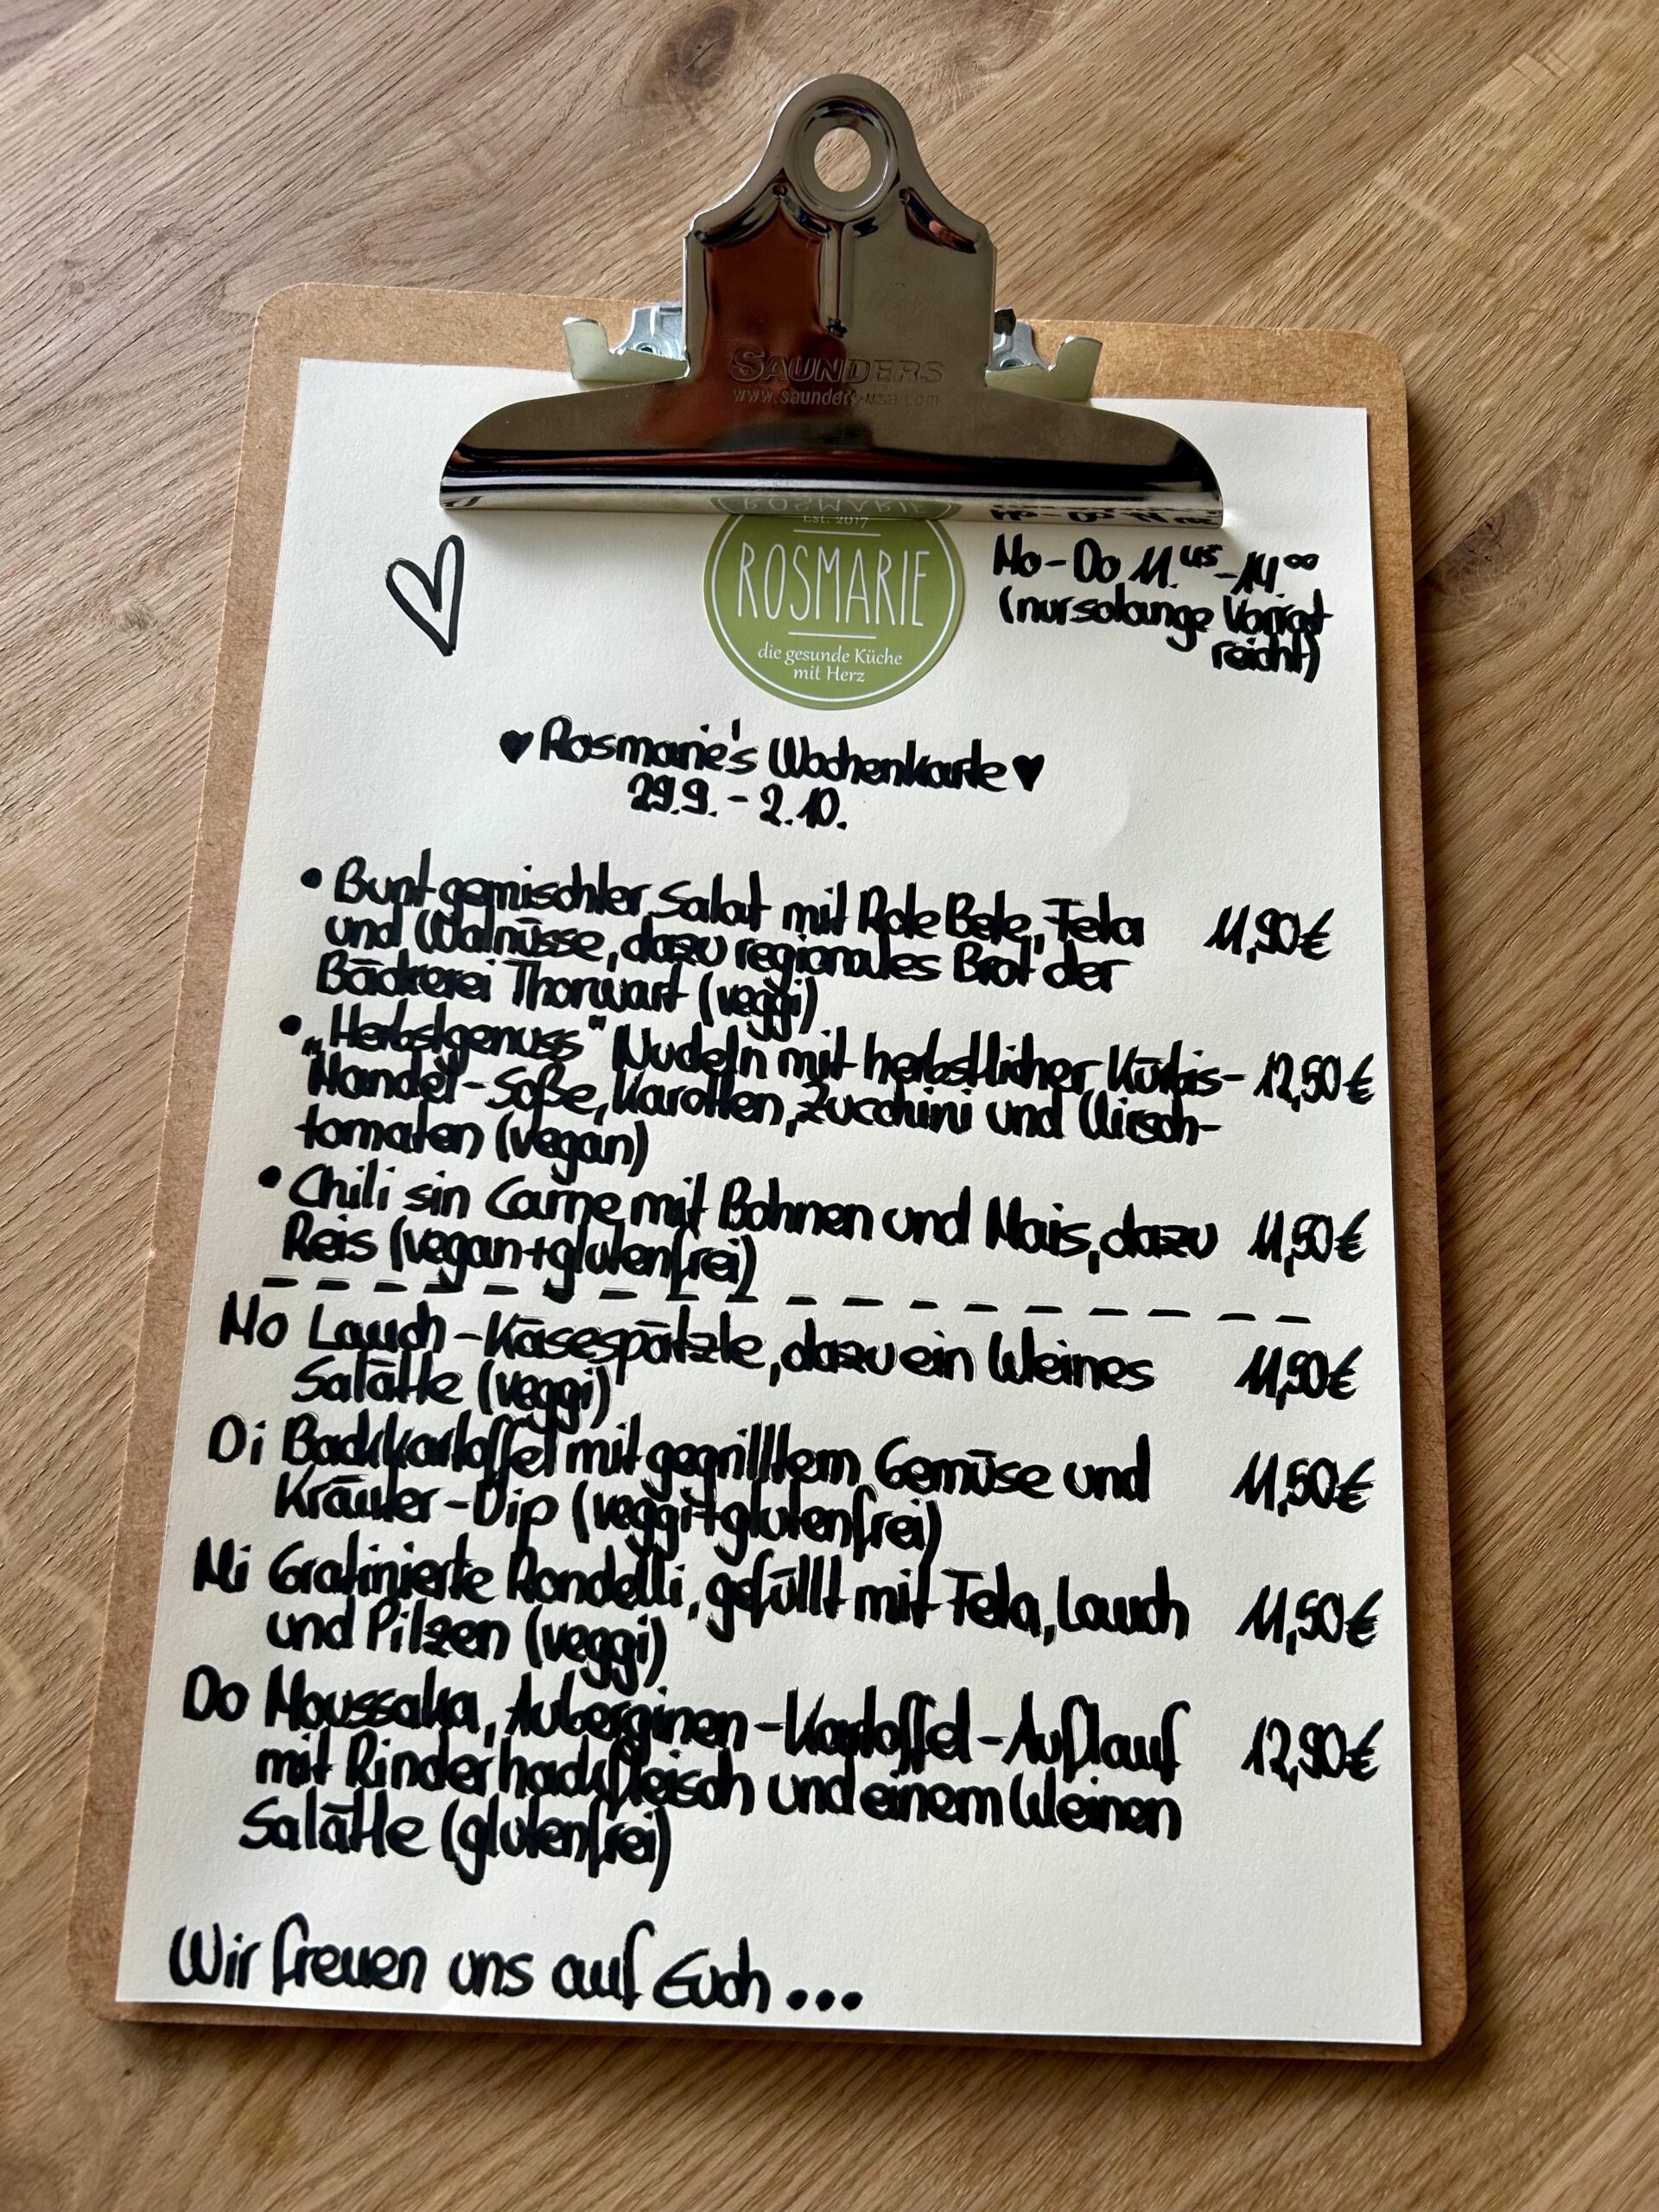 SAUNDERS
www.saunders-usa.com
Est. 2017
ROSMARIE
die gesunde Küche
mit Herz
Mo-Do 11.45-14.00
(nur solange Vorrat
reicht)
♥ Rosmarie's Wochenkarte ♥
29.9. - 2.10.
• Bunt gemischter Salat mit Rote Bete, Feta 11,90€
und Walnüsse, dazu regionales Brot der
Bäckerei Thorwart (veggi)
• „Herbstgenuss" Nudeln mit herbstlicher Kürbis- 12,50€
Mandel-Soße, Karotten, Zucchini und Kirsch-
tomaten (vegan)
• Chili sin Carne mit Bohnen und Mais, dazu 11,50€
Reis (vegan+glutenfrei)
Mo Lauch-Käsespätzle, dazu ein kleines 11,90€
Salätle (veggi)
Di Backkartoffel mit gegrilltem Gemüse und 11,50€
Kräuter-Dip (veggi+glutenfrei)
Mi Gratinierte Rondelli, gefüllt mit Feta, Lauch 11,50€
und Pilzen (veggi)
Do Moussaka, Auberginen-Kartoffel-Auflauf 12,90€
mit Rinderhackfleisch und einem kleinen
Salätle (glutenfrei)
Wir freuen uns auf Euch...